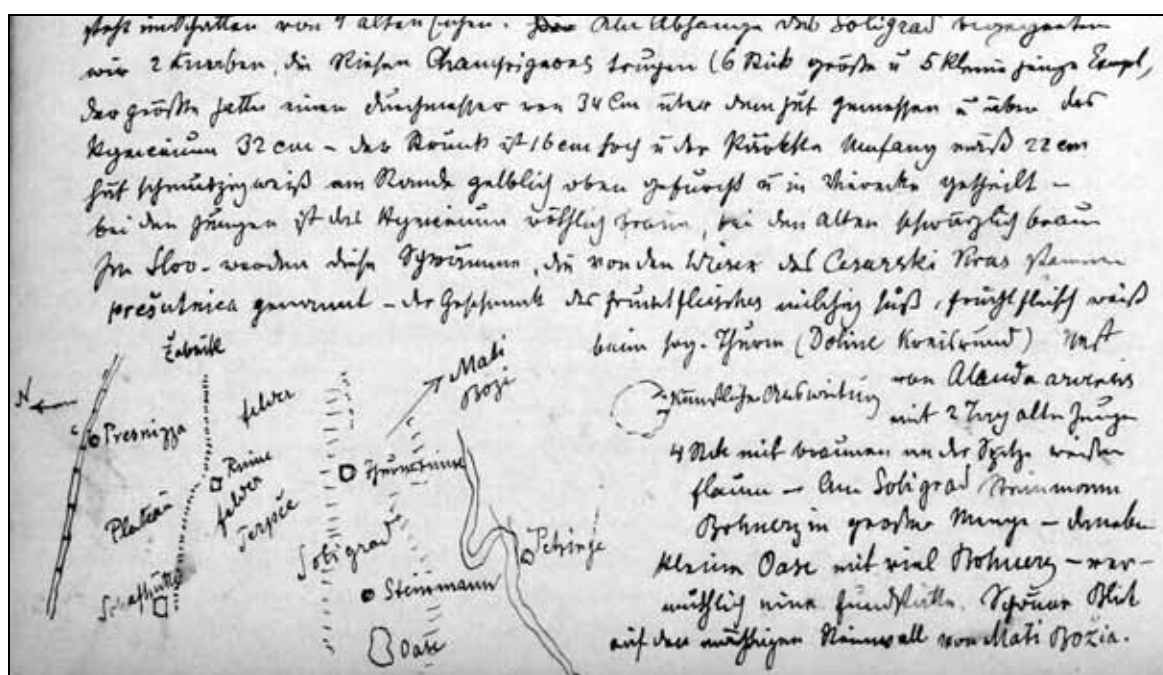 steht im Schatten von 9 alten Eichen. Am Abhange des Soligrad begegneten
wir 2 Knaben, die Riesen Champignons trugen (6 Stück große u 5 kleine junge Exempl,
der größte hatte einen Durchmesser von 34 Cm über dem Hut gemessen u über das
Hymenium 32 cm – der Strunk ist 16 cm hoch u der stärkste Umfang mißt 22 cm
Hut schmutzigweiß am Rande gelblich oben gefurcht u in Vierecke getheilt –
bei den Jungen ist das Hymenium röthlich braun, bei den Alten schwärzlich braun
Im Slov. werden diese Schwämme, die von den Wiesen des Cesarski Kras stammen
prešutnica genannt – der Geschmack des Fruchtfleisches milchig süß, Fruchtfleisch weiß
beim sog. Thurm (Doline Kreisrund) Nest
Künstliche Ausweitung
von Alauda arvensis
mit 2 Tag alte Junge
4 Stck mit braunen an der Spitze weißen
flaum – Am Soligrad Steinmann
Bohnerz in großer Menge – daneben
kleine Oase mit viel Bohnerz – ver-
muthlich eine Fundstätte. Schöner Blick
auf den mächtigen Steinwall von Mati Božia.
N
Presnizza
Plateau
Schafhütte
Žabnik
Ruine
felder
felder
Terpče
Soligrad
Thurmruine
Mati
Bozi
Steinmann
Oase
Petrinje